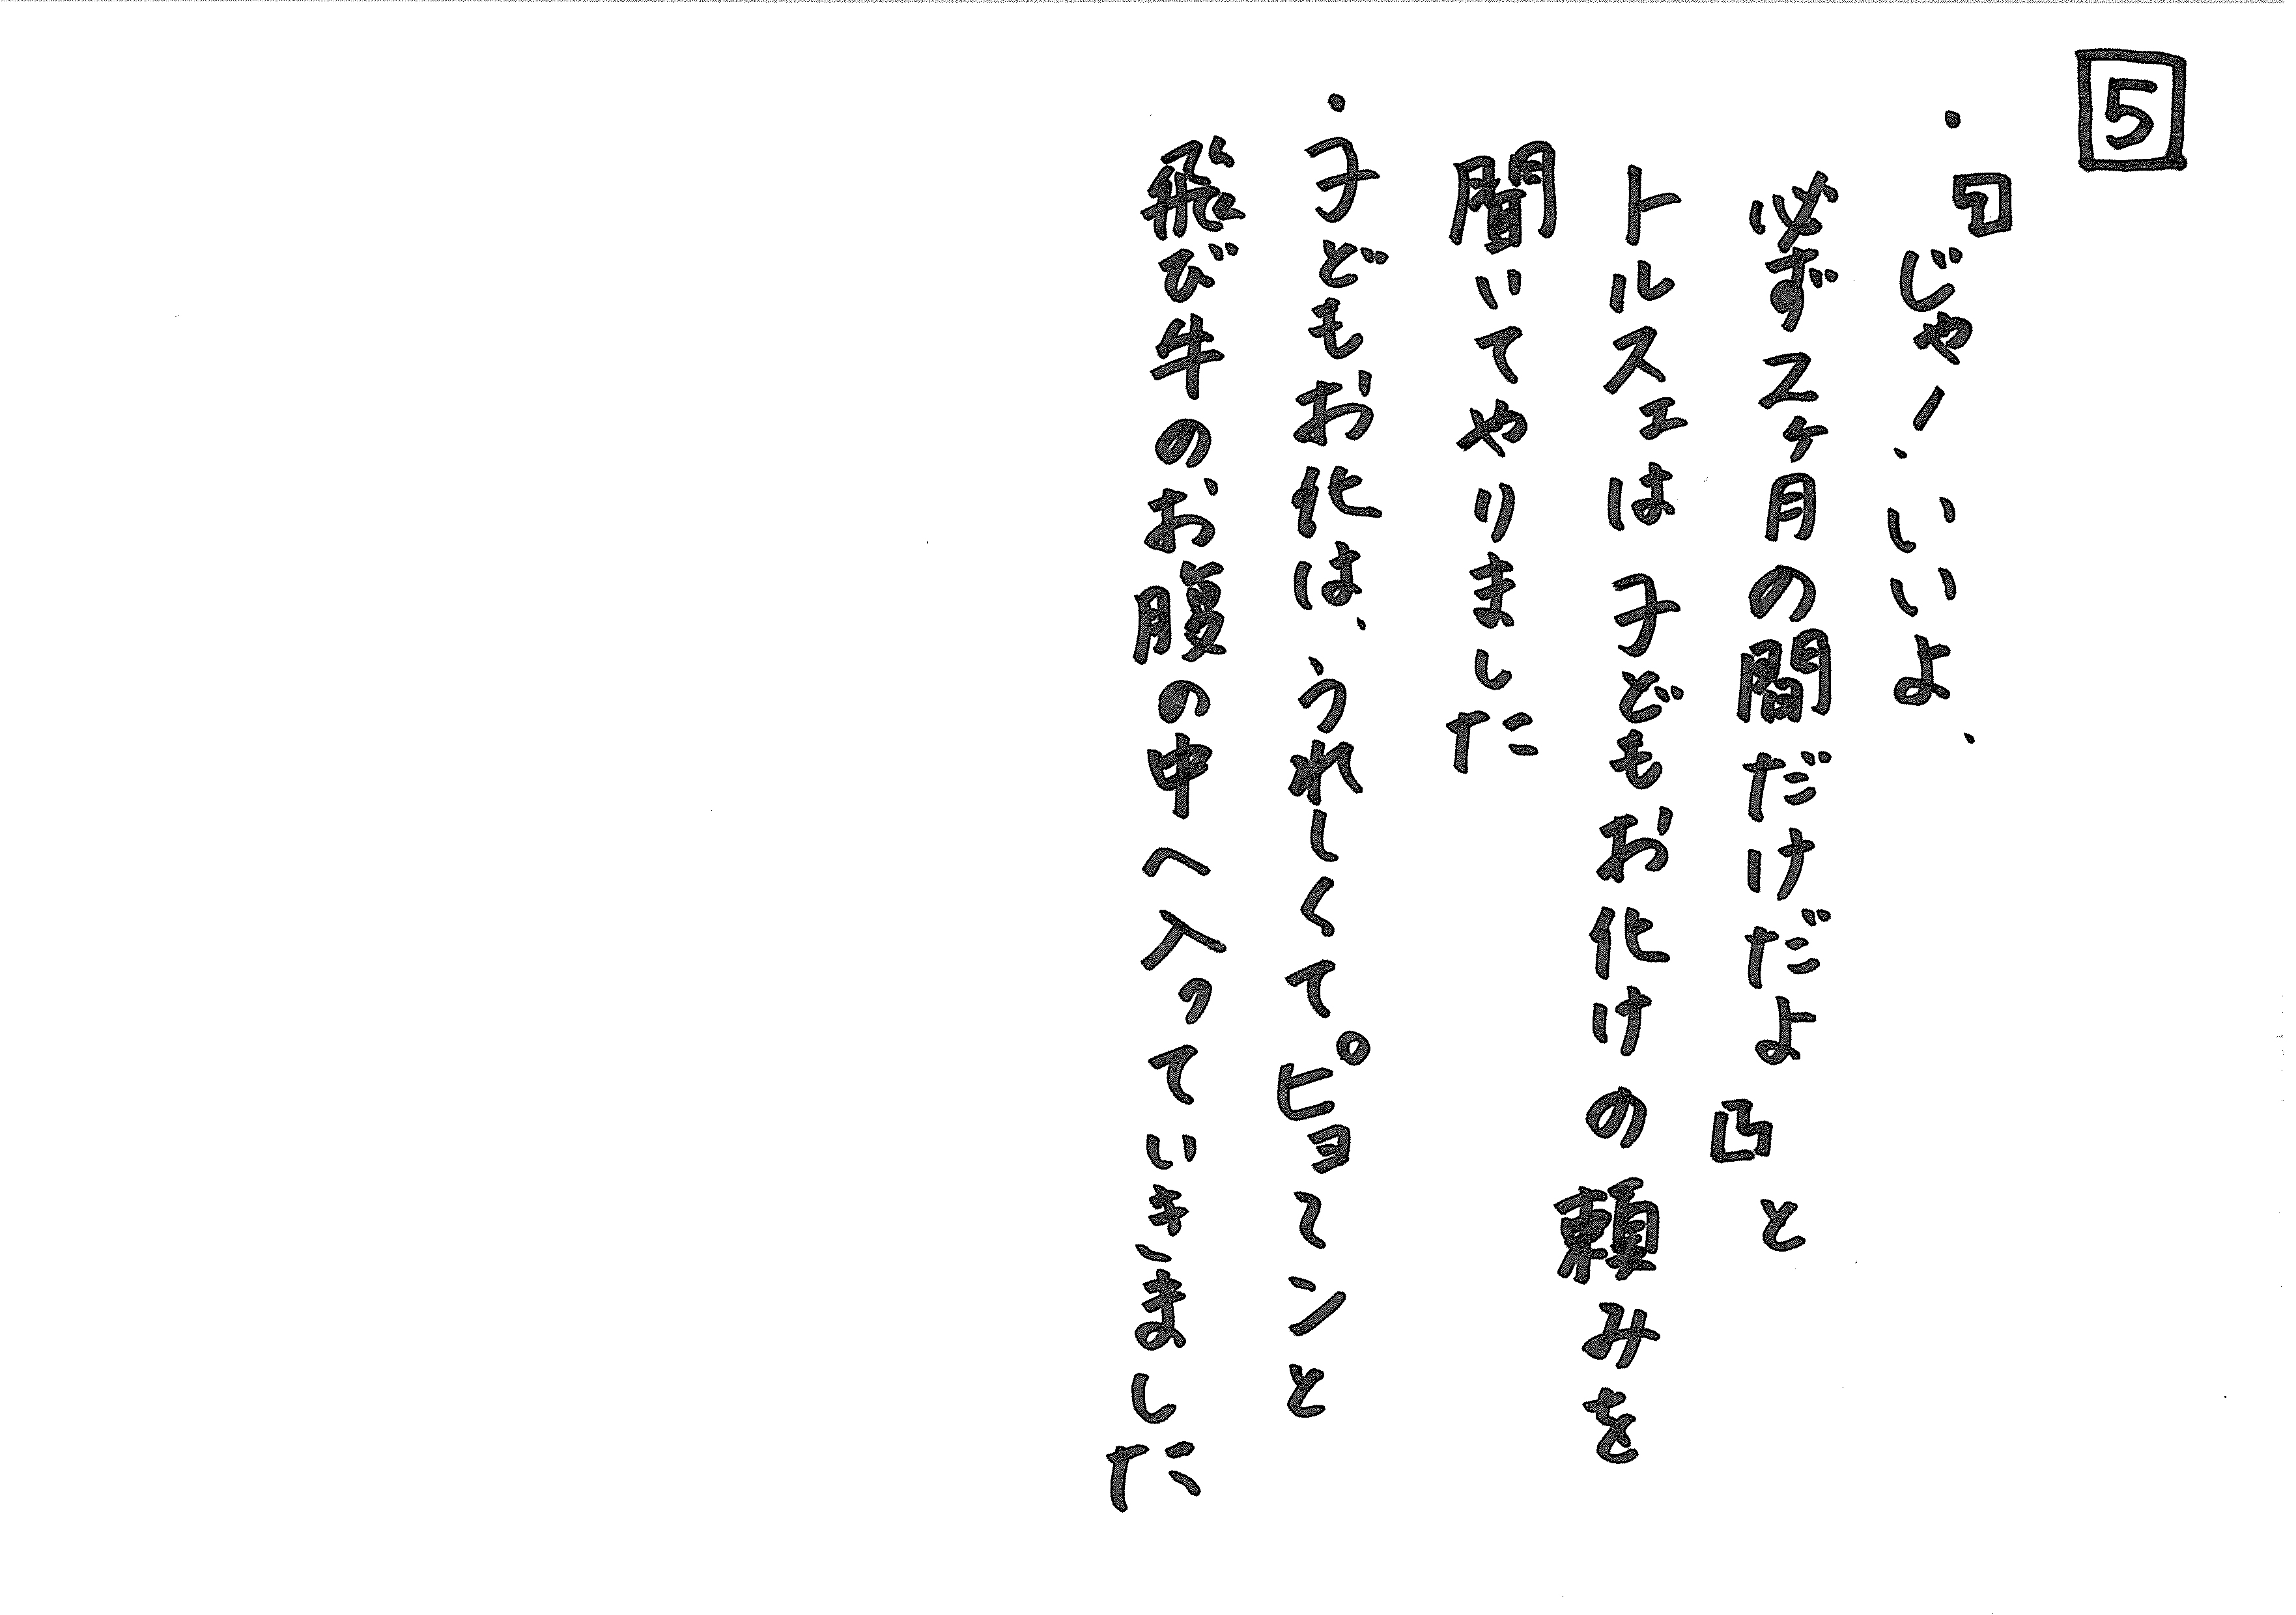 5
・『じゃ！いいよ、
必ず2ヶ月の間だけだよ』と
トルスエは子どもお化けの頼みを
聞いてやりました
・子どもお化は、うれしくて。ピョンと
飛び牛のお腹の中へ入っていきました